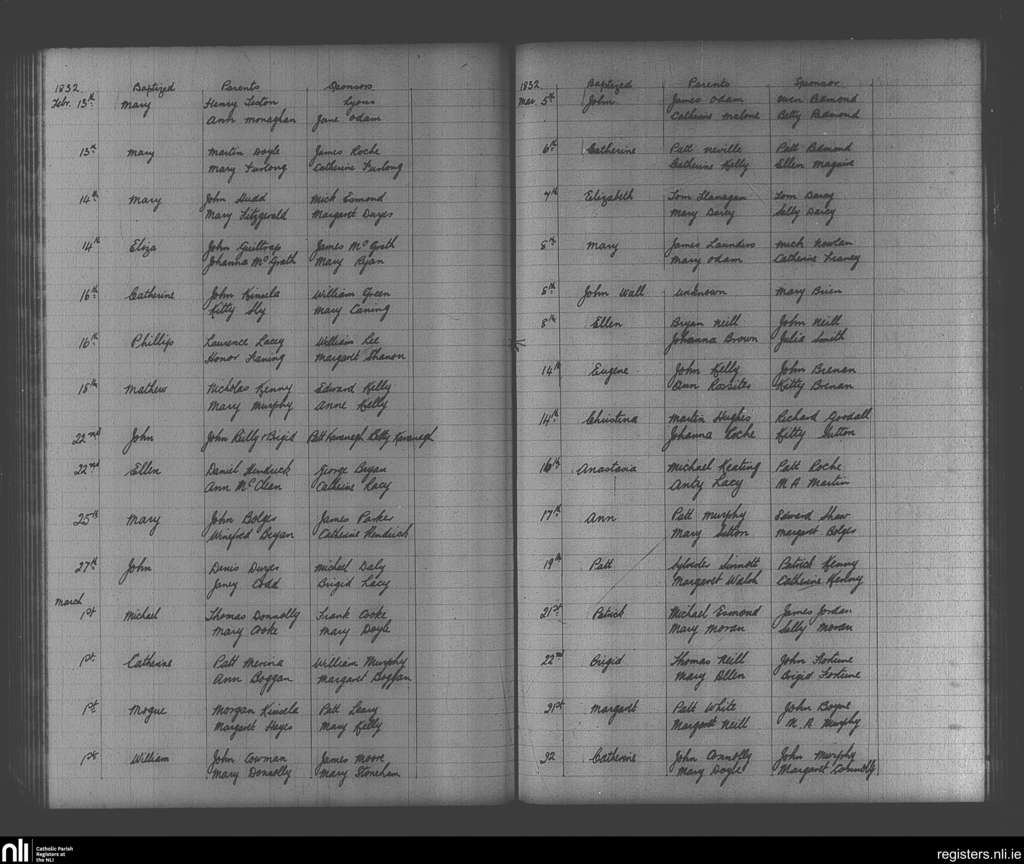 1832 Baptized Parents Sponsors
Febr. 13th Mary Henry Sexton Lyons
Ann Monaghan Jane Odam
13th Mary Martin Doyle James Roche
Mary Furlong Catherine Furlong
14th Mary John Hudd Mick Esmond
Mary Fitzgerald Margaret Dwyer
14th Eliza John Guiltrap James McGrath
Johanna McGrath Mary Ryan
16th Catherine John Kinsela William Green
Kitty Sly Mary Caning
16th Phillip Laurence Lacey William Lee
Honor Faning Margaret Shanon
18th Mathew Nicholas Kenny Edward Kelly
Mary Murphy Anne Kelly
22nd John John Reilly & Brigid Patt Kavanagh Betty Kavanagh
22nd Ellen Daniel Hendrick George Bryan
Ann McClean Catherine Lacy
25th Mary John Bolges James Parker
Winefred Bryan Catherine Hendrick
27th John Denis Dwyer Michael Daly
Jeney Codd Brigid Lacy
March
1st Michael Thomas Donnolly Frank Cooke
Mary Cooke Mary Doyle
1st Catherine Patt Merina William Murphy
Ann Boggan Margaret Boggan
1st Mogue Morgan Kinsela Patt Leary
Margaret Hayes Mary Kelly
1st William John Cowman James Moore
Mary Donnolly Mary Stoneham
1832 Baptized Parents Sponsor
Mar. 5th John James Odam Owen Redmond
Catherine Malone Betty Redmond
6th Catherine Patt Neville Patt Redmond
Catherine Kelly Ellen Maguire
7th Elizabeth Tom Flanagan Tom Darcy
Mary Darcy Sally Darcy
8th Mary James Saunders Mich Nowlan
Mary Odam Catherine Franey
8th John Wall Unknown Mary Brien
8th Ellen Bryan Neill John Neill
Johanna Brown Julia Smith
14th Eugene John Kelly John Brenan
Ann Rossiter Kitty Brenan
14th Christina Martin Hughes Richard Goodall
Johanna Roche Kitty Sutton
16th Anastasia Michael Keating Patt Roche
Anty Lacy M.A. Martin
17th Ann Patt Murphy Edward Shaw
Mary Sutton Margaret Bolges
19th Patt Sylvester Sinnott Patrick Kenny
Margaret Walsh Catherine Kenny
21st Patrick Michael Esmond James Jordan
Mary Moran Sally Moran
22nd Brigid Thomas Neill John Fortune
Mary Allen Brigid Fortune
21st Margaret Patt White John Boyne
Margaret Neill M. A. Murphy
32 Catherine John Connolly John Murphy
Mary Doyle Margaret Connolly
nli Catholic Parish
Registers at
the NLI
registers.nli.ie